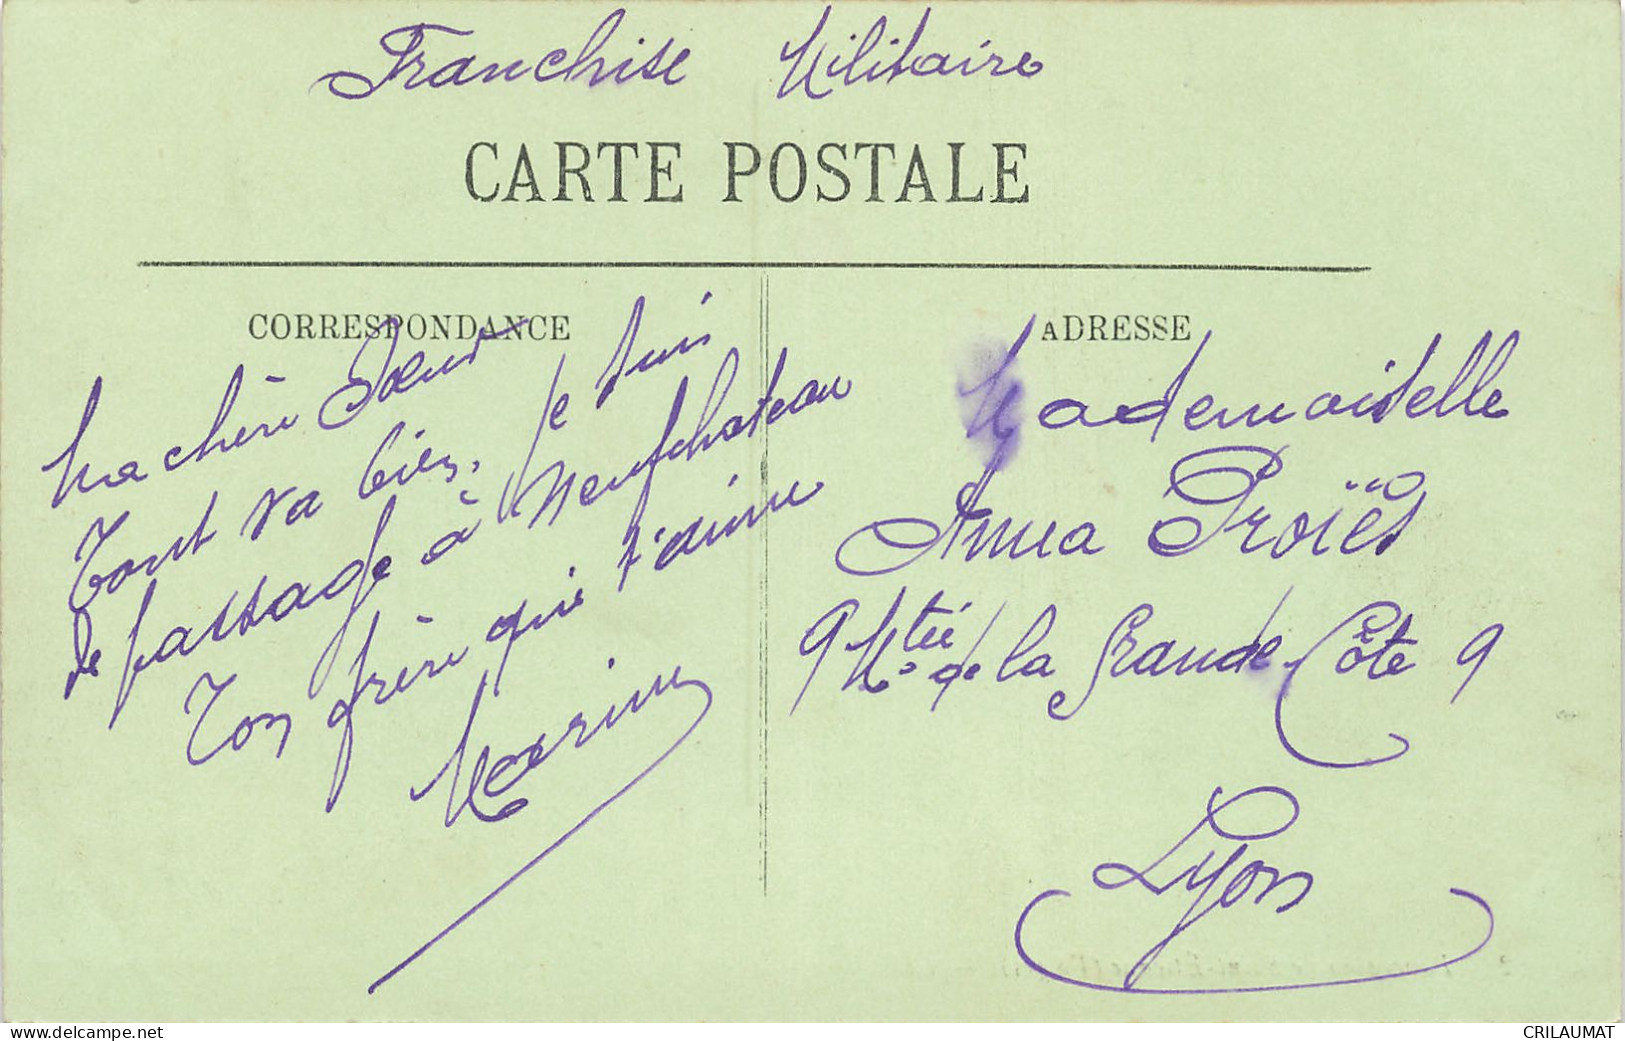 Franchise Militaire
CARTE POSTALE
CORRESPONDANCE
Ma chère Sœur
Tout va bien, je suis
de passage à Neufchateau
Ton frère qui t'aime
Marius
ADRESSE
Mademoiselle
Anna Proïes
9 Mtée de la Grande Côte 9
Lyon
www.delcampe.net
CRILAUMAT